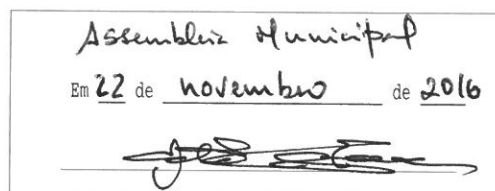 Assembleia Municipal
Em 22 de novembro de 2016